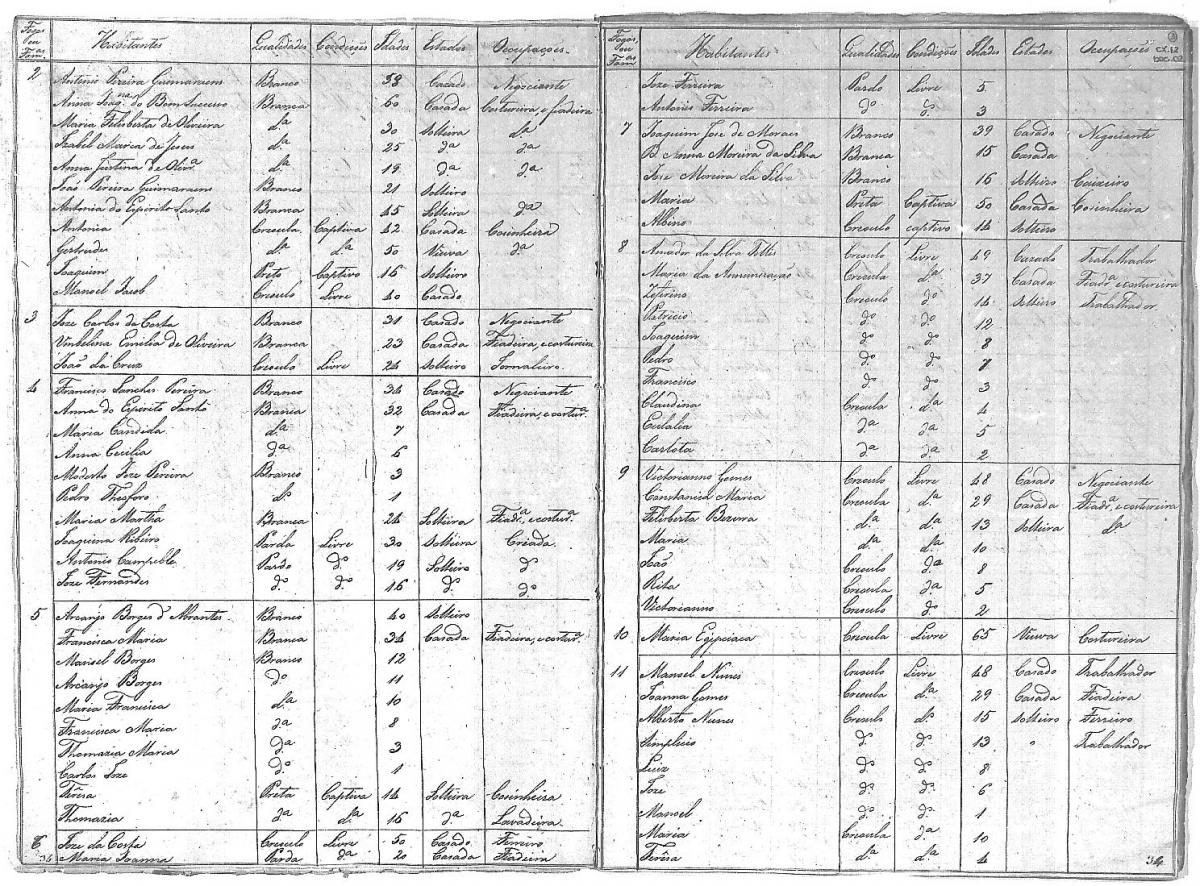 Fogos ou Fam.as Habitantes Qualidades Condições Idades Estados Occupações.
2 Antonio Pereira Guimaraens Branco 58 Casado Negociante
Anna Joaq.na do Bom Successo Branca 50 Casada Costureira, e fiadeira
Maria Felisberta de Oliveira d.a 30 Solteira d.a
Izabel Maria de Jesus d.a 25 d.a d.a
Anna Justina d'Oliv.a d.a 19 d.a d.a
João Pereira Guimaraens Branco 21 Solteiro
Antonia do Espirito Santo Branca 45 Solteira d.a
Antonia Creoula Captiva 42 Casada Cosinheira
Gertrudes d.a d.a 50 Viuva d.a
Joaquim Preto Captivo 16 Solteiro
Manoel Jacob Creoulo Livre 40 Casado
3 Joze Carlos da Costa Branco 31 Casado Negociante
Umbelina Emilia de Oliveira Branca 23 Casada Fiadeira, e costureira
João da Cruz Creoulo Livre 24 Solteiro Jornaleiro.
4 Francisco Sanches Pereira Branco 34 Casado Negociante
Anna do Espirito Santo Branca 32 Casada Fiadeira, e costur.a
Maria Candida d.a 7
Anna Cecilia d.a 6
Modesto Joze Pereira Branco 3
Pedro Theoforo d.o 1
Maria Martha Branca 24 Solteira Fiadr.a, e costur.a
Joaquina Ribeiro Parda Livre 30 Solteira Criada.
Antonio Pardo d.o 19 Solteiro d.o
Joze Fernandes d.o d.o 16 d.o d.o
5 Arcanjo Borges d'Abrantes. Branco 40 Solteiro
Francisca Maria Branca 34 Casada Fiadeira, e costur.a
Manoel Borges Branco 12
Arcanjo Borges d.o 11
Maria Francisca d.a 10
Francisca Maria d.a 8
Thomazia Maria d.a 3
Carlos Joze d.o 1
Teresa Preta Captiva 14 Solteira Cosinheira
Thomazia d.a d.a 16 d.a Lavadeira.
6 Joze da Costa Creoulo Livre 50 Casado Ferreiro
Maria Joanna Parda d.a 20 Casada Fiadeira
34
Fogos ou Fam.as Habitantes Qualidades Condições Idades Estados Occupações
3
CX.12
DOC.02
Joze Ferreira Pardo Livre 5
Antonio Ferreira d.o d.o 3
7 Joaquim Joze de Moraes Branco 39 Casado Negociante
D. Anna Moreira da Silva Branca 15 Casada
Joze Moreira da Silva Branco 16 Solteiro Caixeiro
Maria Preta Captiva 50 Casada Cosinheira
Albino Creoulo captivo 14 Solteiro
8 Amador da Silva Creoulo Livre 49 Casado Trabalhador
Maria da Annunciação Creoula d.a 37 Casada Fiadr.a e costureira
Zeferino Creoulo d.o 14 Solteiro Trabalhador
Patricio d.o d.o 12
Joaquim d.o d.o 8
Pedro d.o d.o 7
Francisco d.o d.o 3
Claudina Creoula d.a 4
Eulalia d.a d.a 5
Carlota d.a d.a 2
9 Victorianno Gomes Creoulo Livre 48 Casado Negociante
Constancia Maria Creoula d.a 29 Casada Fiadr.a, e costureira
Felisberta Bezerra d.a d.a 13 Solteira d.a
Maria d.a d.a 10
João Creoulo d.a 8
Rita Creoula d.a 5
Victorianno Creoulo d.o 2
10 Maria Egipciaca Creoula Livre 65 Viuva Costureira
11 Manoel Nunes Creoulo Livre 48 Casado Trabalhador
Joanna Gomes Creoula d.a 29 Casada Fiadeira
Alberto Nunes Creoulo d.o 15 Solteiro Ferreiro
Simplicio d.o d.o 13 " Trabalhador
Luiz d.o d.o 8
Joze d.o d.o 6
Manoel d.o d.o 1
Maria Creoula d.a 10
Teresa d.a d.a 4
34